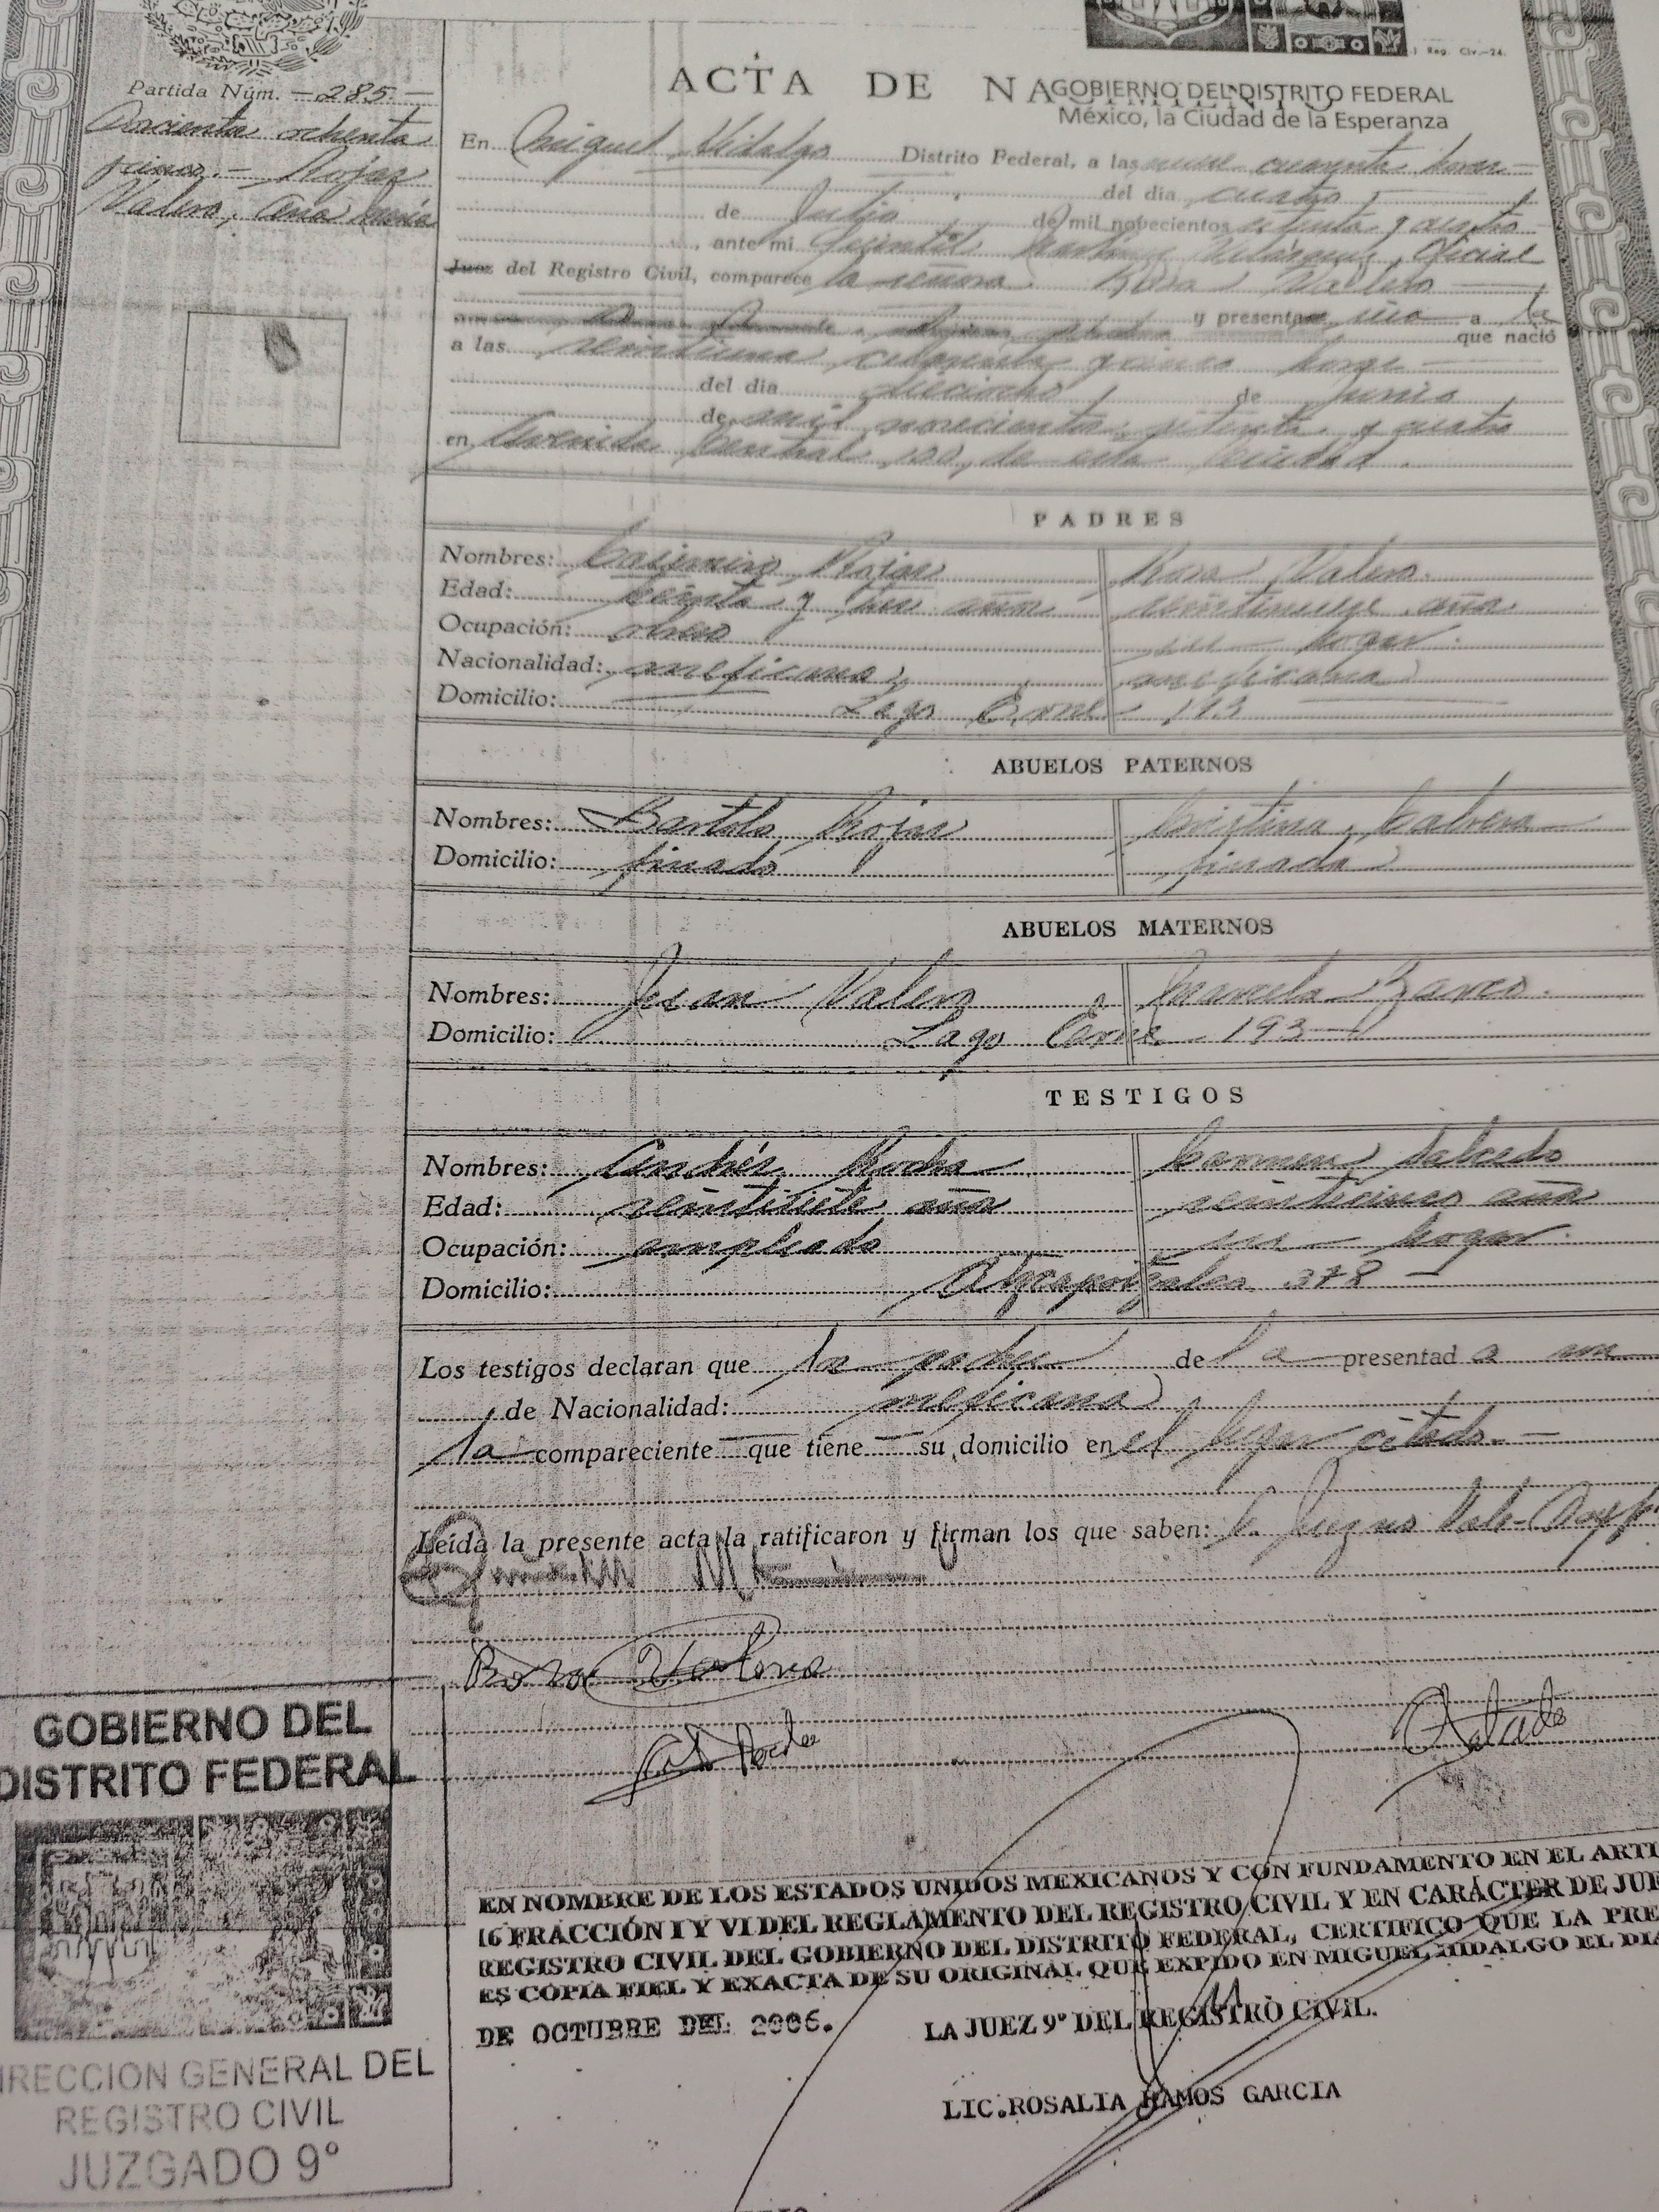 Reg. Civ.-24.
Partida Núm. — 285. —
ochenta
cinco.— Rojas
Valero, Ana María
ACTA DE NACIMIENTO
GOBIERNO DEL DISTRITO FEDERAL
México, la Ciudad de la Esperanza
En Miguel Hidalgo Distrito Federal, a las nueve cuarenta horas —
del día cuatro
de Julio de mil novecientos setenta y cuatro
, ante mi Martínez Velázquez, Oficial
Juez del Registro Civil, comparece la señora Rosa Valero —
y presenta a la
que nació
a las veintiuna cincuenta y cinco horas —
del día dieciocho de Junio
de mil novecientos setenta y cuatro
en Avenida Central 100, de esta Ciudad.
PADRES
Nombres: Casimiro Rojas Rosa Valero.
Edad: treinta y un años veintinueve años
Ocupación: obrero su hogar.
Nacionalidad: mexicano mexicana
Domicilio: Lago Erne 193
ABUELOS PATERNOS
Nombres: Bartolo Rojas Cristina Cabrera
Domicilio: finado finada
ABUELOS MATERNOS
Nombres: Juan Valero Manuela
Domicilio: Lago Erne 193
TESTIGOS
Nombres: Andrés Rocha Carmen Salcedo
Edad: veintisiete años veinticinco años
Ocupación: empleado su hogar.
Domicilio: Atzcapotzalco 378 —
Los testigos declaran que la de la presentada
de Nacionalidad: mexicana
la compareciente — que tiene — su domicilio en el lugar citado. —
Leída la presente acta la ratificaron y firman los que saben:
Rosa Valero
GOBIERNO DEL
DISTRITO FEDERAL
EN NOMBRE DE LOS ESTADOS UNIDOS MEXICANOS Y CON FUNDAMENTO EN EL ARTI
16 FRACCIÓN I Y VI DEL REGLAMENTO DEL REGISTRO CIVIL Y EN CARÁCTER DE JUE
REGISTRO CIVIL DEL GOBIERNO DEL DISTRITO FEDERAL, CERTIFICO QUE LA PRE
ES COPIA FIEL Y EXACTA DE SU ORIGINAL QUE EXPIDO EN MIGUEL HIDALGO EL DIA
11
DE OCTUBRE DEL 2006. LA JUEZ 9º DEL REGISTRO CIVIL.
LIC.ROSALIA RAMOS GARCIA
DIRECCION GENERAL DEL
REGISTRO CIVIL
JUZGADO 9º